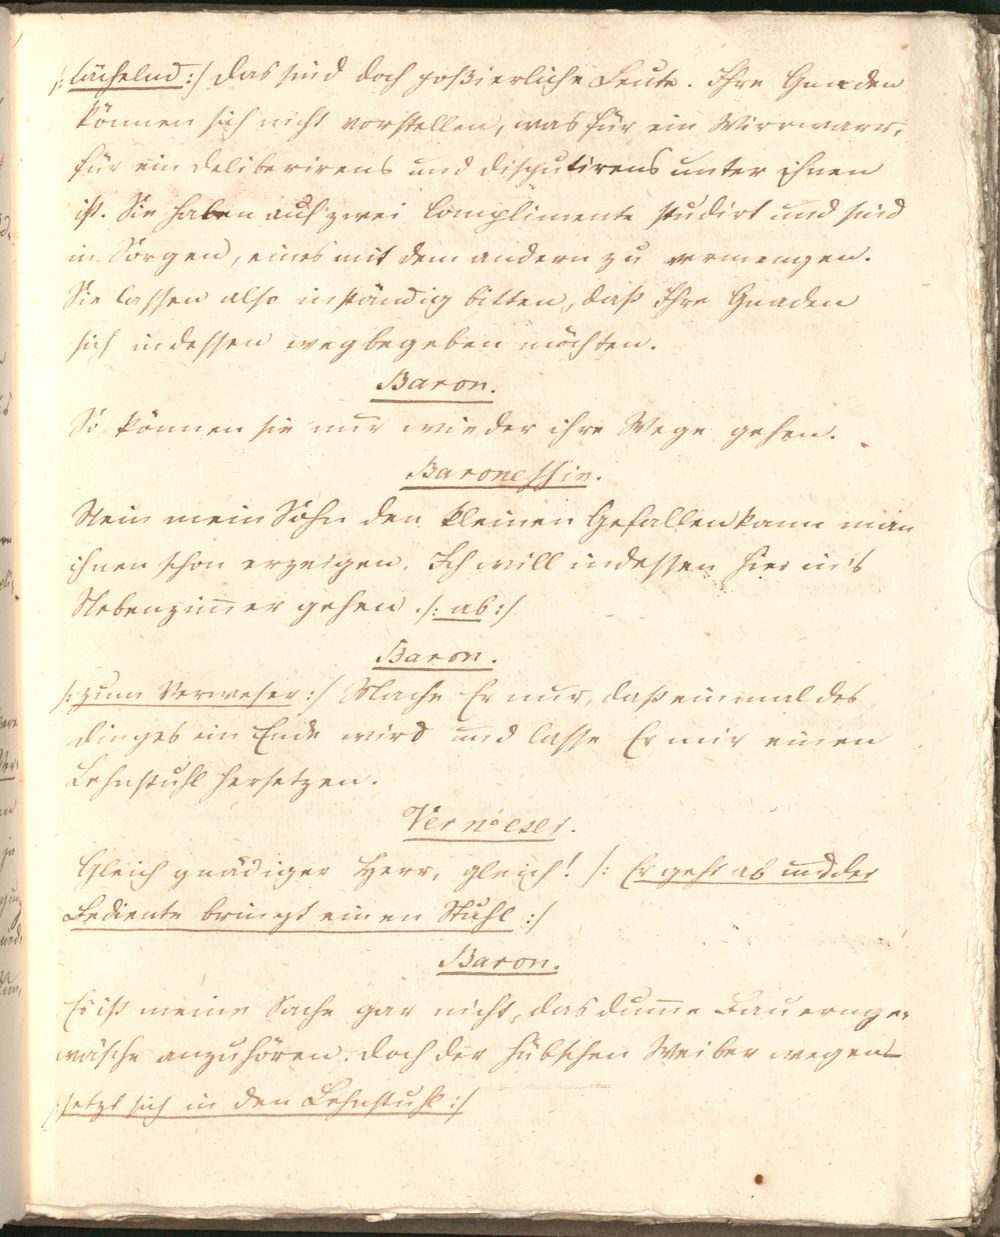 /: lächelnd :/ das sind doch poßierliche Leute. Ihre Gnaden
können sich nicht vorstellen, was für ein Wirrwarr,
für ein deliberirens und disputirens unter ihnen
ist. Sie haben auf zwei Complimente studirt und sind
in Sorgen, eines mit dem andern zu vermengen.
Sie lassen also inständig bitten, daß Ihre Gnaden
sich indessen wegbegeben möchten.
Baron.
So können sie nur wieder ihre Wege gehen.
Baronessin.
Nein mein Sohn den kleinen Gefallen kann man
ihnen schon erzeigen. Ich will indessen hier in's
Nebenzim̅er gehen. /: ab :/
Baron.
/: zum Verweser :/ Mache Er nur, daß einmal des
dinges ein Ende wird und lasse Er mir einen
Lehnstuhl hersetzen.
Verweser.
Gleich gnädiger Herr, gleich! /: Er geht ab und der
Bediente bringt einen Stuhl :/
Baron.
Es ist meine Sache gar nicht, das dum̅e Bauernge-
wäsche anzuhören. doch der hübschen Weiber wegen
/: setzt sich in den Lehnstuhl :/